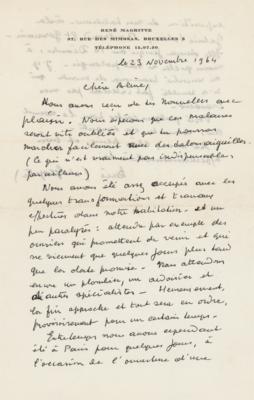 RENÉ MAGRITTE
97, RUE DES MIMOSAS, BRUXELLES 3
TÉLÉPHONE 15.07.30
le 23 Novembre 1964
Chère Aline,
Nous avons reçu de tes nouvelles avec
plaisir. Nous espérons que ces malaises
seront vite oubliés et que tu pourras
marcher facilement avec des talons aiguilles.
(Ce qui n'est vraiment pas indispensable
par ailleurs)
Nous avons été assez occupés avec les
quelques transformations et travaux
effectués dans notre habitation - et un
peu paralysés : attendre par exemple des
ouvriers qui promettent de venir et qui
ne viennent que quelques jours plus tard
que la date promise. - Nous attendons
encore un plombier, un ardoisier et
d'autres spécialistes - Heureusement,
la fin approche et tout sera en ordre,
provisoirement pour un certain temps.
Entretemps nous avons cependant
été à Paris pour quelques jours, à
l'occasion de l'ouverture d'une